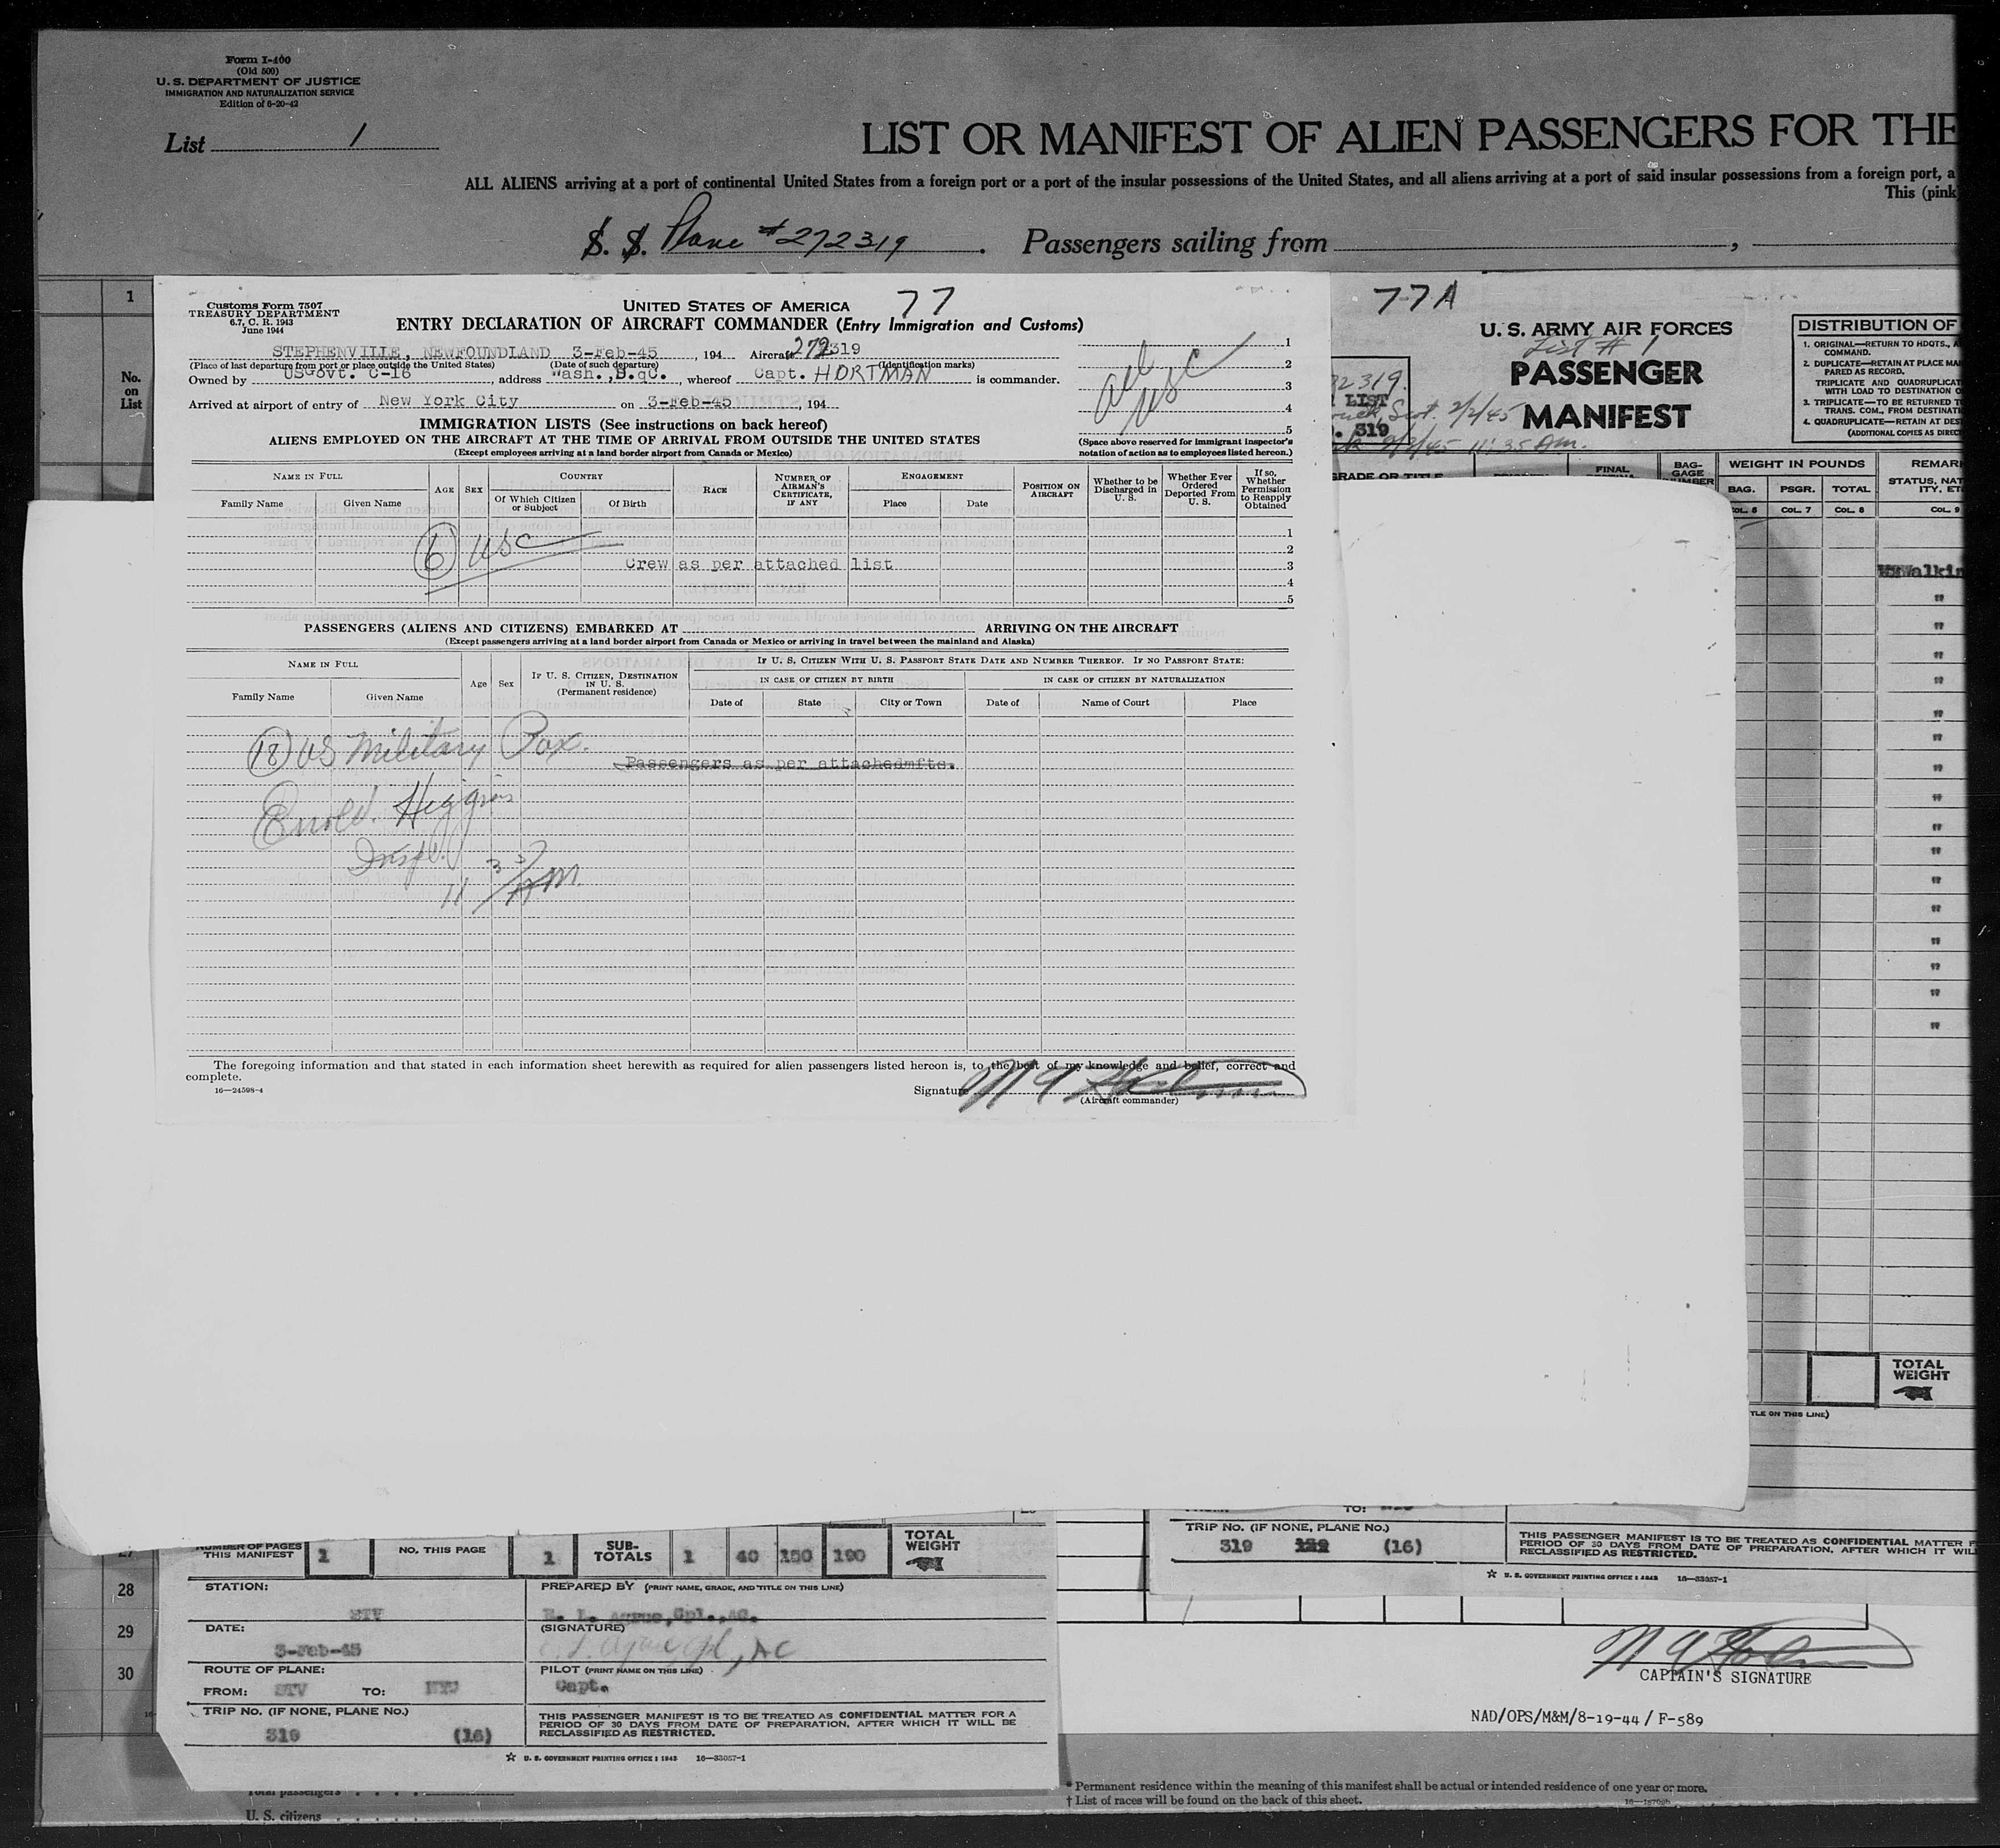 Form I-400
(Old 500)
U. S. DEPARTMENT OF JUSTICE
IMMIGRATION AND NATURALIZATION SERVICE
Edition of 6-20-42
List 1
LIST OR MANIFEST OF ALIEN PASSENGERS FOR THE
ALL ALIENS arriving at a port of continental United States from a foreign port or a port of the insular possessions of the United States, and all aliens arriving at a port of said insular possessions from a foreign port, a
This (pink
S. S. Plane #272319. Passengers sailing from ,
1
No.
on
List
Customs Form 7507
TREASURY DEPARTMENT
6.7, C. R. 1943
June 1944
UNITED STATES OF AMERICA 77
ENTRY DECLARATION OF AIRCRAFT COMMANDER (Entry Immigration and Customs)
STEPHENVILLE, NEWFOUNDLAND 3-Feb-45, 194 Aircraft 272319
(Place of last departure from port or place outside the United States) (Date of such departure) (Identification marks)
Owned by USGovt. C-16, address Wash., whereof Capt. HORTMAN is commander.
Arrived at airport of entry of New York City on 3-Feb-45, 194
1
2
3
4
5
all
usc
IMMIGRATION LISTS (See instructions on back hereof)
ALIENS EMPLOYED ON THE AIRCRAFT AT THE TIME OF ARRIVAL FROM OUTSIDE THE UNITED STATES
(Except employees arriving at a land border airport from Canada or Mexico)
(Space above reserved for immigrant inspector's
notation of action as to employees listed hereon.)
NAME IN FULL
Family Name Given Name
AGE SEX
COUNTRY
Of Which Citizen or Subject Of Birth
RACE
NUMBER OF AIRMAN'S CERTIFICATE, IF ANY
ENGAGEMENT
Place Date
POSITION ON AIRCRAFT
Whether to be Discharged in U. S.
Whether Ever Ordered Deported From U. S.
If so, Whether Permission to Reapply Obtained
6 USC
Crew as per attached list
1
2
3
4
5
PASSENGERS (ALIENS AND CITIZENS) EMBARKED AT ARRIVING ON THE AIRCRAFT
(Except passengers arriving at a land border airport from Canada or Mexico or arriving in travel between the mainland and Alaska)
NAME IN FULL
Family Name Given Name
Age Sex
IF U. S. CITIZEN, DESTINATION IN U. S.
(Permanent residence)
IF U. S. CITIZEN WITH U. S. PASSPORT STATE DATE AND NUMBER THEREOF. IF NO PASSPORT STATE:
IN CASE OF CITIZEN BY BIRTH IN CASE OF CITIZEN BY NATURALIZATION
Date of State City or Town Date of Name of Court Place
18 US Military Pax.
Passengers as per attachedmfts.
Higgins
Insp.
11 35/AM
The foregoing information and that stated in each information sheet herewith as required for alien passengers listed hereon is, to the best of my knowledge and belief, correct and
complete.
16—24598-4
Signature
(Aircraft commander)
77A
U. S. ARMY AIR FORCES
List # 1
PASSENGER
MANIFEST
319.
LIST
Scot. 2/2/45
319
11:35 Am.
DISTRIBUTION OF
1. ORIGINAL—RETURN TO HDQTS., A
COMMAND.
2. DUPLICATE—RETAIN AT PLACE MA
PARED AS RECORD.
TRIPLICATE AND QUADRUPLICAT
WITH LOAD TO DESTINATION O
3. TRIPLICATE—TO BE RETURNED T
TRANS. COM., FROM DESTINAT
4. QUADRUPLICATE—RETAIN AT DES
(ADDITIONAL COPIES AS DIREC
GRADE OR TITLE
FINAL
BAG-
GAGE
NUMBER
WEIGHT IN POUNDS
BAG. PSGR. TOTAL
COL. 6 COL. 7 COL. 8
REMAR
STATUS, NAT
ITY, ET
COL. 9
Walkin
"
"
"
"
"
"
"
"
"
"
"
"
"
"
"
"
TOTAL
WEIGHT
TLE ON THIS LINE)
27
28
29
30
NUMBER OF PAGES
THIS MANIFEST 1
NO. THIS PAGE 1
SUB-
TOTALS 1 40 150 190
TOTAL
WEIGHT
STATION:
STV
DATE:
3-Feb-45
ROUTE OF PLANE:
FROM: STV TO: NYU
TRIP NO. (IF NONE, PLANE NO.)
319 (16)
PREPARED BY (PRINT NAME, GRADE, AND TITLE ON THIS LINE)
Cpl., AC.
(SIGNATURE)
AC
PILOT (PRINT NAME ON THIS LINE)
Capt.
THIS PASSENGER MANIFEST IS TO BE TREATED AS CONFIDENTIAL MATTER FOR A
PERIOD OF 30 DAYS FROM DATE OF PREPARATION, AFTER WHICH IT WILL BE
RECLASSIFIED AS RESTRICTED.
☆ U. S. GOVERNMENT PRINTING OFFICE : 1943 16—33057-1
TO:
TRIP NO. (IF NONE, PLANE NO.)
319 (16)
THIS PASSENGER MANIFEST IS TO BE TREATED AS CONFIDENTIAL MATTER F
PERIOD OF 30 DAYS FROM DATE OF PREPARATION, AFTER WHICH IT WIL
RECLASSIFIED AS RESTRICTED.
☆ U. S. GOVERNMENT PRINTING OFFICE : 1943 16—33057-1
CAPTAIN'S SIGNATURE
NAD/OPS/M&M/8-19-44 / F-589
Total passengers
U. S. citizens
* Permanent residence within the meaning of this manifest shall be actual or intended residence of one year or more.
† List of races will be found on the back of this sheet.